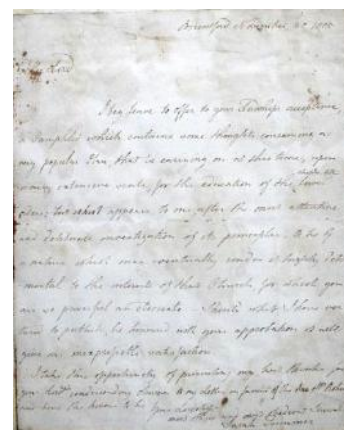 Brentford November
My Lord
I beg leave to offer to your Lordships acceptance,
a Pamphlet which contains some thoughts concerning a
very popular Plan, that is carrying on at this time, upon
a very extensive scale, for the education of the lower
Class; but which appears to me after the most attentive
and deliberate investigation of its principles to be of
a nature which may eventually render it highly detri
mental to the interests of that Church, for which you
are so powerful an Advocate. Should what I have ven
tured to publish, be honoured with your approbation it will
give me inexpressible satisfaction.
I take this opportunity of presenting my best thanks for
your kind condescending answer to my letter in favour of the
and have the honour to be
most
Sarah Trimmer